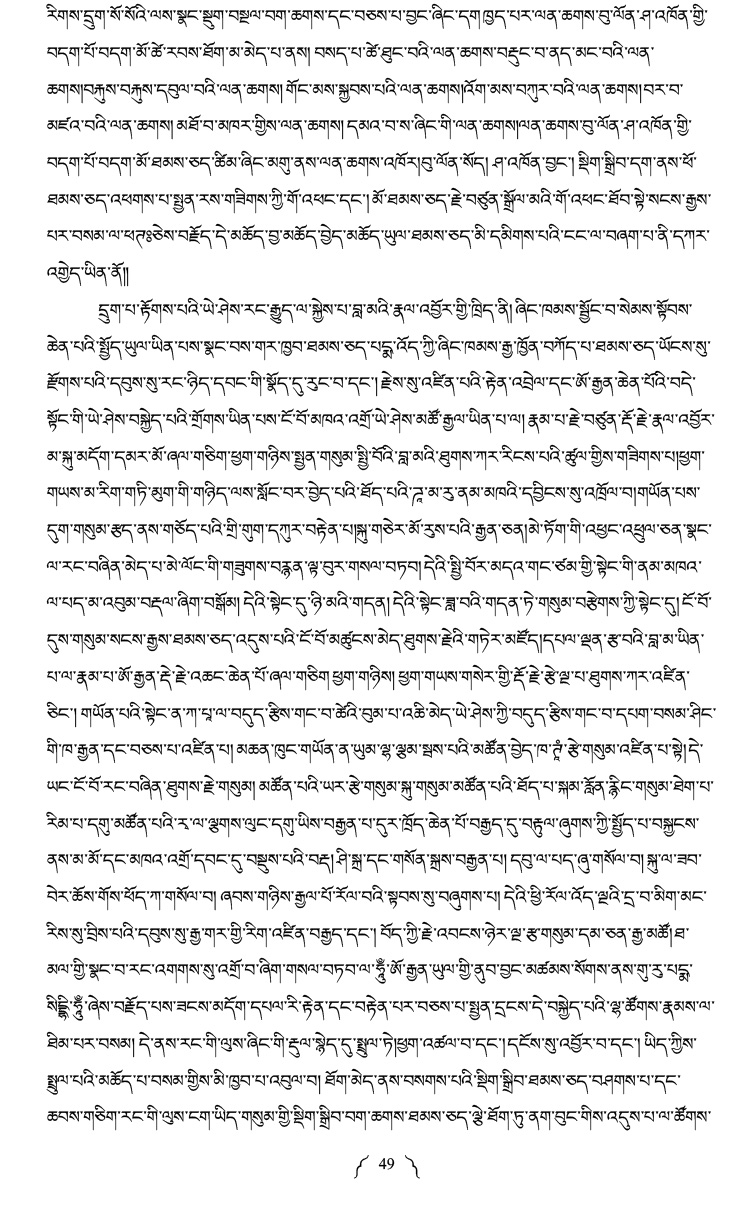 རིགས་དྲུག་སོ་སོའི་ལས་སྣང་སྡུག་བསྔལ་བག་ཆགས་དང་བཅས་པ་བྱང་ཞིང་དག ཁྱད་པར་ལན་ཆགས་བུ་ལོན་ཤ་འཁོན་གྱི་
བདག་པོ་བདག་མོ་ཚེ་རབས་ཐོག་མ་མེད་པ་ནས། བསད་པ་ཚེ་ཐུང་བའི་ལན་ཆགས་བརྡུང་བ་ནད་མང་བའི་ལན་
ཆགས།བརྐུས་བརྐུས་དབུལ་བའི་ལན་ཆགས། གོང་མས་སྐྱབས་པའི་ལན་ཆགས།འོག་མས་བཀུར་བའི་ལན་ཆགས།བར་བ་
མཛའ་བའི་ལན་ཆགས། མཐོ་བ་མཁར་གྱིས་ལན་ཆགས། དམའ་བ་ས་ཞིང་གི་ལན་ཆགས།ལན་ཆགས་བུ་ལོན་ཤ་འཁོན་གྱི་
བདག་པོ་བདག་མོ་ཐམས་ཅད་ཚིམ་ཞིང་མགུ་ནས་ལན་ཆགས་འཁོར།བུ་ལོན་སོད། ཤ་འཁོན་བྱང་། སྡིག་སྒྲིབ་དག་ནས་ཕོ་
ཐམས་ཅད་འཕགས་པ་སྤྱན་རས་གཟིགས་ཀྱི་གོ་འཕང་དང་། མོ་ཐམས་ཅད་རྗེ་བཙུན་སྒྲོལ་མའི་གོ་འཕང་ཐོབ་སྟེ་སངས་རྒྱས་
པར་བསམ་ལ་ཕཊཿཅེས་བརྗོད་དེ་མཆོད་བྱ་མཆོད་བྱེད་མཆོད་ཡུལ་ཐམས་ཅད་མི་དམིགས་པའི་ངང་ལ་བཞག་པ་ནི་དཀར་
འགྱེད་ཡིན་ནོ།།
དྲུག་པ་རྟོགས་པའི་ཡེ་ཤེས་རང་རྒྱུད་ལ་སྐྱེས་པ་བླ་མའི་རྣལ་འབྱོར་གྱི་ཁྲིད་ནི། ཞིང་ཁམས་སྦྱོང་བ་སེམས་སྟོབས་
ཆེན་པའི་སྤྱོད་ཡུལ་ཡིན་པས་སྣང་བས་གར་ཁྱབ་ཐམས་ཅད་པདྨ་འོད་ཀྱི་ཞིང་ཁམས་རྒྱ་ཁྱོན་བཀོད་པ་ཐམས་ཅད་ཡོངས་སུ་
རྫོགས་པའི་དབུས་སུ་རང་ཉིད་དབང་གི་སྣོད་དུ་རུང་བ་དང་། རྗེས་སུ་འཛིན་པའི་རྟེན་འབྲེལ་དང་ཨོ་རྒྱན་ཆེན་པོའི་བདེ་
སྟོང་གི་ཡེ་ཤེས་བསྐྱེད་པའི་གྲོགས་ཡིན་པས་ངོ་བོ་མཁའ་འགྲོ་ཡེ་ཤེས་མཚོ་རྒྱལ་ཡིན་པ་ལ། རྣམ་པ་རྗེ་བཙུན་རྡོ་རྗེ་རྣལ་འབྱོར་
མ་སྐུ་མདོག་དམར་མོ་ཞལ་གཅིག་ཕྱག་གཉིས་སྤྱན་གསུམ་སྤྱི་བོའི་བླ་མའི་ཐུགས་ཀར་རིངས་པའི་ཚུལ་གྱིས་གཟིགས་པ།ཕྱག་
གཡས་མ་རིག་གཏི་མུག་གི་གཉིད་ལས་སློང་བར་བྱེད་པའི་ཐོད་པའི་ཌཱ་མ་རུ་ནམ་མཁའི་དབྱིངས་སུ་འཁྲོལ་བ།གཡོན་པས་
དུག་གསུམ་རྩད་ནས་གཅོད་པའི་གྲི་གུག་དཀུར་བརྟེན་པ།སྐུ་གཅེར་མོ་རུས་པའི་རྒྱན་ཅན།མེ་ཏོག་གི་འཕྱང་འཕྲུལ་ཅན་སྣང་
ལ་རང་བཞིན་མེད་པ་མེ་ལོང་གི་གཟུགས་བརྙན་ལྟ་བུར་གསལ་བཏབ། དེའི་སྤྱི་བོར་མདའ་གང་ཙམ་གྱི་སྟེང་གི་ནམ་མཁའ་
ལ་པད་མ་འབུམ་བརྡལ་ཞིག་བསྒོམ། དེའི་སྟེང་དུ་ཉི་མའི་གདན། དེའི་སྟེང་ཟླ་བའི་གདན་ཏེ་གསུམ་བརྩེགས་ཀྱི་སྟེང་དུ། ངོ་བོ་
དུས་གསུམ་སངས་རྒྱས་ཐམས་ཅད་འདུས་པའི་ངོ་བོ་མཚུངས་མེད་ཐུགས་རྗེའི་གཏེར་མཛོད།དཔལ་ལྡན་རྩ་བའི་བླ་མ་ཡིན་
པ་ལ་རྣམ་པ་ཨོ་རྒྱན་རྡེ་རྗེ་འཆང་ཆེན་པོ་ཞལ་གཅིག ཕྱག་གཉིས། ཕྱག་གཡས་གསེར་གྱི་རྡོ་རྗེ་རྩེ་ལྔ་པ་ཐུགས་ཀར་འཛིན་
ཅིང་། གཡོན་པའི་སྟེང་ན་ཀ་པཱ་ལ་བདུད་རྩིས་གང་བ་ཚེའི་བུམ་པ་འཆི་མེད་ཡེ་ཤེས་ཀྱི་བདུད་རྩིས་གང་བ་དཔག་བསམ་ཤིང་
གི་ཁ་རྒྱན་དང་བཅས་པ་འཛིན་པ། མཆན་ཁུང་གཡོན་ན་ཡུམ་ལྷ་ལྕམ་སྦས་པའི་མཚོན་བྱེད་ཁ་ཊྭཾ་རྩེ་གསུམ་འཛིན་པ་སྟེ། དེ་
ཡང་ངོ་བོ་རང་བཞིན་ཐུགས་རྗེ་གསུམ། མཚོན་པའི་ཡར་རྩེ་གསུམ་སྐུ་གསུམ་མཚོན་པའི་ཐོད་པ་སྐམ་རློན་རྙིང་གསུམ་ཐེག་པ་
རིམ་པ་དགུ་མཚོན་པའི་ར་ལ་ལྕགས་ལུང་དགུ་ཡིས་བརྒྱན་པ་དུར་ཁྲོད་ཆེན་པོ་བརྒྱད་དུ་བརྟུལ་ཞུགས་ཀྱི་སྤྱོད་པ་བསྐྱངས་
ནས་མ་མོ་དང་མཁའ་འགྲོ་དབང་དུ་བསྡུས་པའི་བརྡ། ཤི་སྐྲ་དང་གསོན་སྐྲས་བརྒྱན་པ། དབུ་ལ་པད་ཞུ་གསོལ་བ། སྐུ་ལ་ཟབ་
བེར་ཆོས་གོས་ཕོད་ཀ་གསོལ་བ། ཞབས་གཉིས་རྒྱལ་པོ་རོལ་བའི་སྟབས་སུ་བཞུགས་པ། དེའི་ཕྱི་རོལ་འོད་ལྔའི་དྲ་བ་མིག་མང་
རིས་སུ་བྲིས་པའི་དབུས་སུ་རྒྱ་གར་གྱི་རིག་འཛིན་བརྒྱད་དང་། བོད་ཀྱི་རྗེ་འབངས་ཉེར་ལྔ་རྩ་གསུམ་དམ་ཅན་རྒྱ་མཚོ། ཐ་
མལ་གྱི་སྣང་བ་རང་འགགས་སུ་འགྲོ་བ་ཞིག་གསལ་བཏབ་ལ་ཧཱུྃ་ཨོ་རྒྱན་ཡུལ་གྱི་ནུབ་བྱང་མཚམས་སོགས་ནས་གུ་རུ་པདྨ་
སིདྡྷི་ཧཱུྃ་ཞེས་བརྗོད་པས་ཟངས་མདོག་དཔལ་རི་རྟེན་དང་བརྟེན་པར་བཅས་པ་སྤྱན་དྲངས་དེ་བསྐྱེད་པའི་ལྷ་ཚོགས་རྣམས་ལ་
ཐིམ་པར་བསམ། དེ་ནས་རང་གི་ལུས་ཞིང་གི་རྡུལ་སྙེད་དུ་སྤྲུལ་ཏེ།ཕྱག་འཚལ་བ་དང་། དངོས་སུ་འབྱོར་བ་དང་། ཡིད་ཀྱིས་
སྤྲུལ་པའི་མཆོད་པ་བསམ་གྱིས་མི་ཁྱབ་པ་འབུལ་བ། ཐོག་མེད་ནས་བསགས་པའི་སྡིག་སྒྲིབ་ཐམས་ཅད་བཤགས་པ་དང་
ཆབས་གཅིག་རང་གི་ལུས་ངག་ཡིད་གསུམ་གྱི་སྡིག་སྒྲིབ་བག་ཆགས་ཐམས་ཅད་ལྕེ་ཐོག་ཏུ་ནག་བུང་གིས་འདུས་པ་ལ་ཚོགས་
49